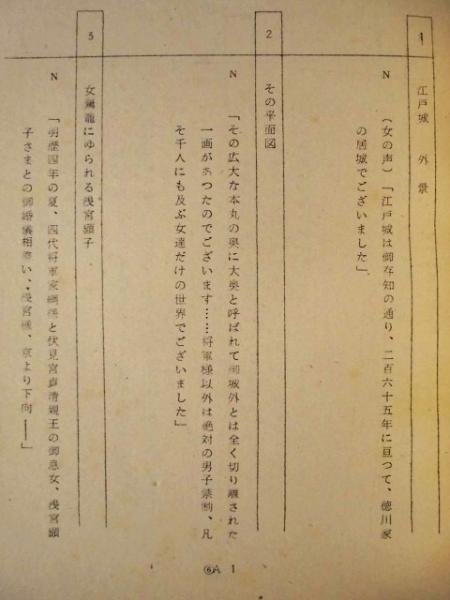 1
江戸城　外景
N
（女の声）「江戸城は御存知の通り、二百六十五年に亘つて、徳川家
の居城でございました」
2
その平面図
N
「その広大な本丸の奥に大奥と呼ばれて御城外とは全く切り離された
一画があつたのでございます……将軍様以外は絶対の男子禁制、凡
そ千人にも及ぶ女達だけの世界でございました」
3
女駕籠にゆられる浅宮顕子
N
「明歴四年の夏、四代将軍家綱様と伏見宮貞清親王の御息女、浅宮顕
子さまとの御婚儀相整い、浅宮様、京より下向――」
⑥A 1